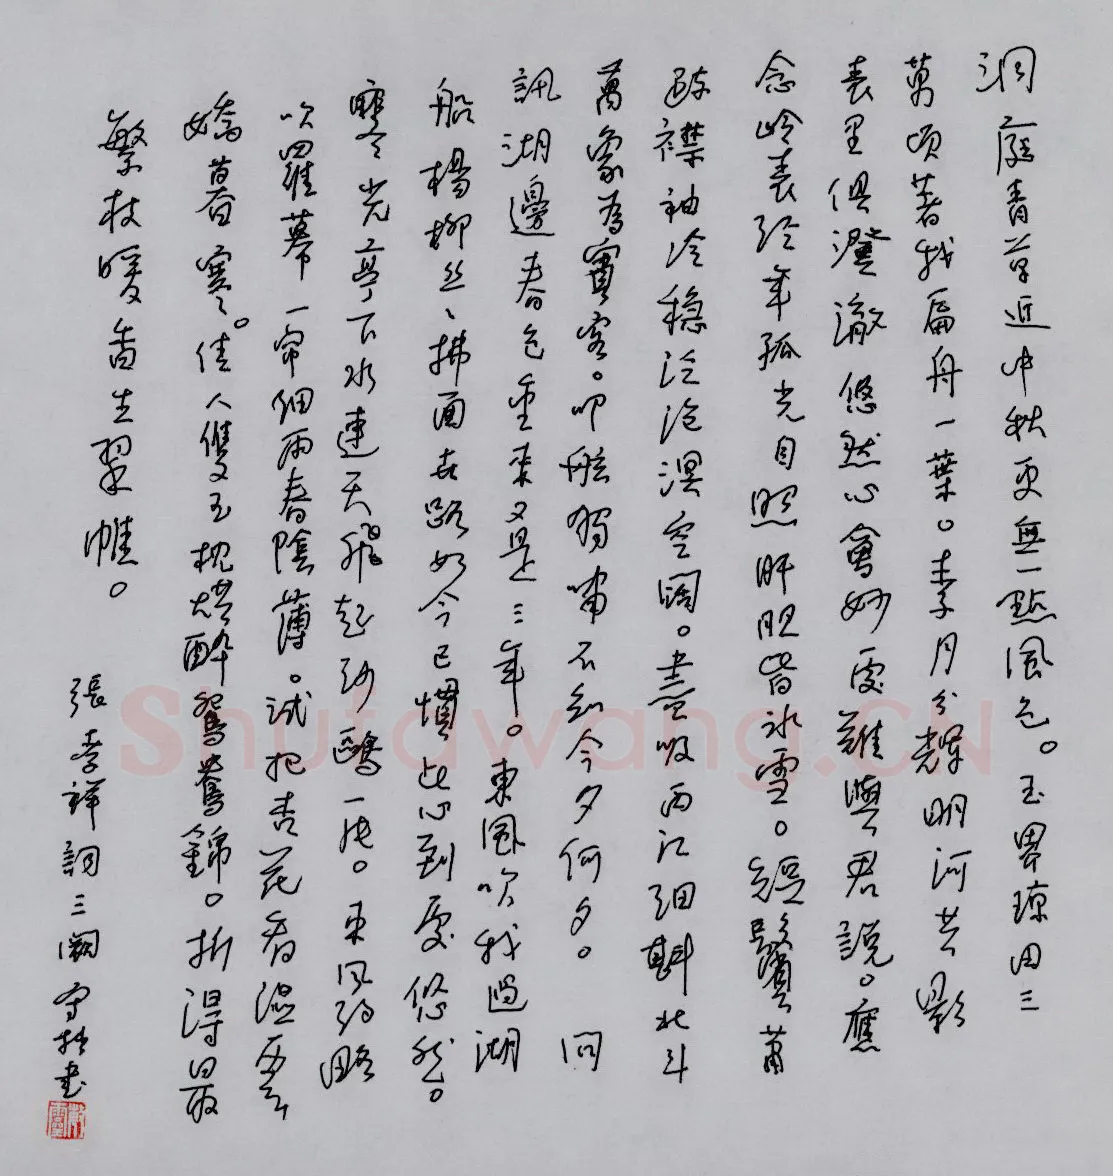 洞庭青草近中秋更無一點風色。玉界瓊田三
萬頃著我扁舟一葉。素月分輝明河共影
表里俱澄澈悠然心會妙處難與君說。應
念嶺表經年孤光自照肝胆皆冰雪。短鬢蕭
疏襟袖冷穩泛滄溟空闊。盡吸西江細斟北斗
萬象為賓客。叩舷獨嘯不知今夕何夕。 問
訊湖邊春色重來又是三年。東風吹我過湖
船楊柳絲丶拂面世路如今已慣此心到處悠然。
寒光亭下水連天飛起沙鷗一片。東風約略
吹羅幕一帘細雨春陰薄。試把杏花看濕雲
嬌暮寒。佳人雙玉枕烘醉鴛鴦錦。折得最
繁枝暖香生翠帷。
張孝祥詞三闋 守 書
Shufawang.CN